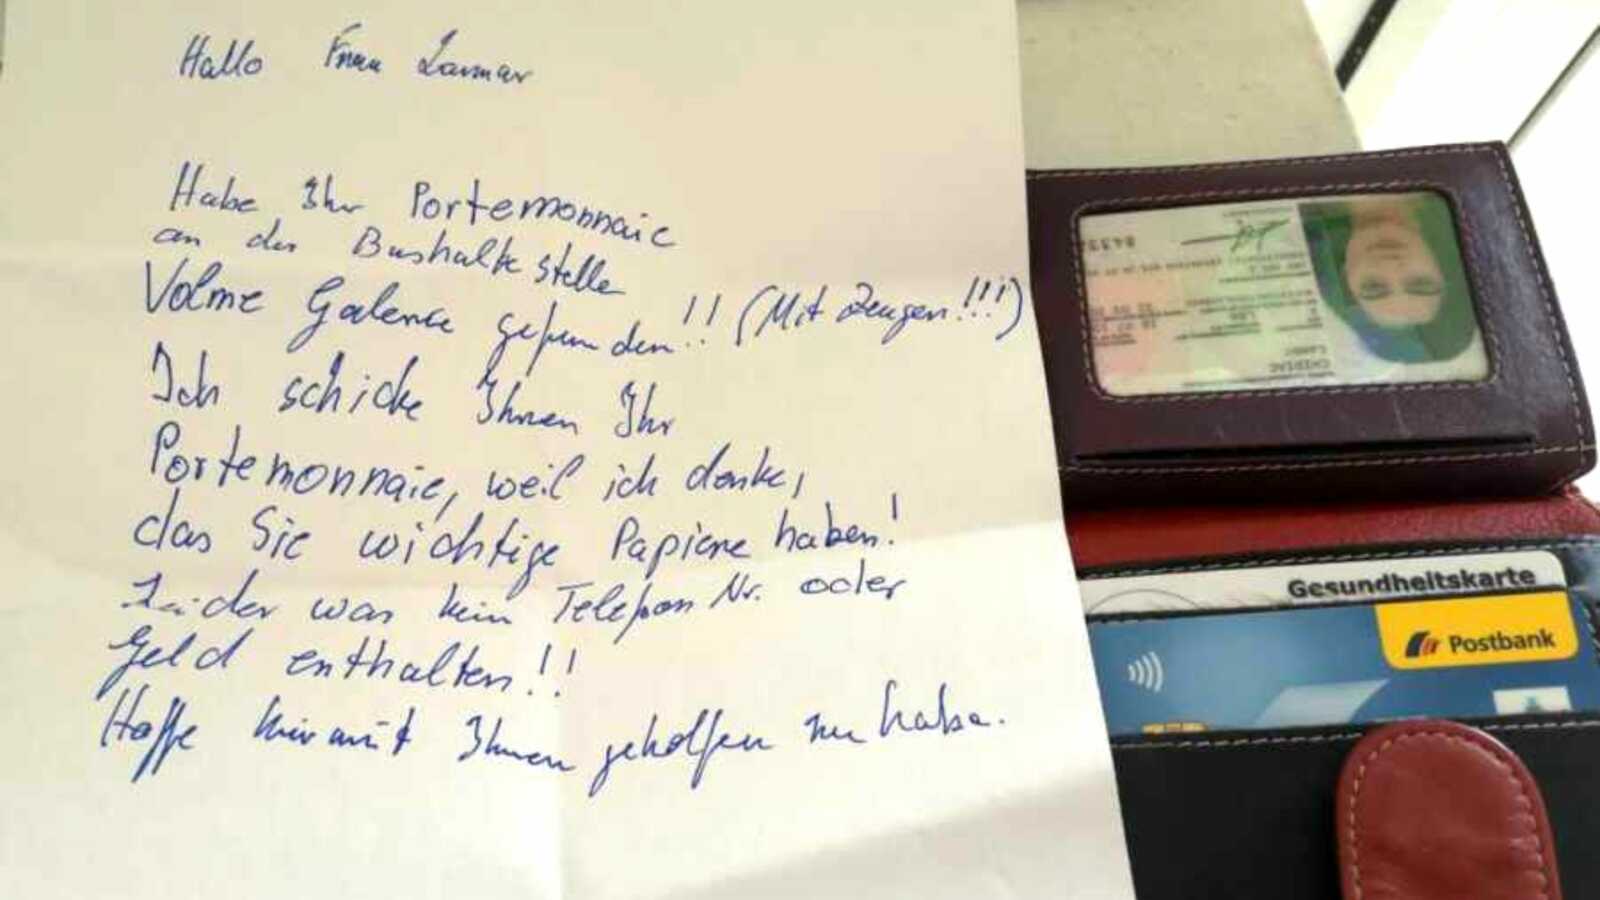 Hallo Frau Lamar
Habe Ihr Portemonnaie
an der Bushaltestelle
Volme Galerie gefunden!! (Mit Zeugen!!!)
Ich schicke Ihnen Ihr
Portemonnaie, weil ich denke,
das Sie wichtige Papiere haben!
Leider war kein Telefon Nr. oder
Geld enthalten!!
Hoffe hiermit Ihnen geholfen zu habe.
Gesundheitskarte
Postbank